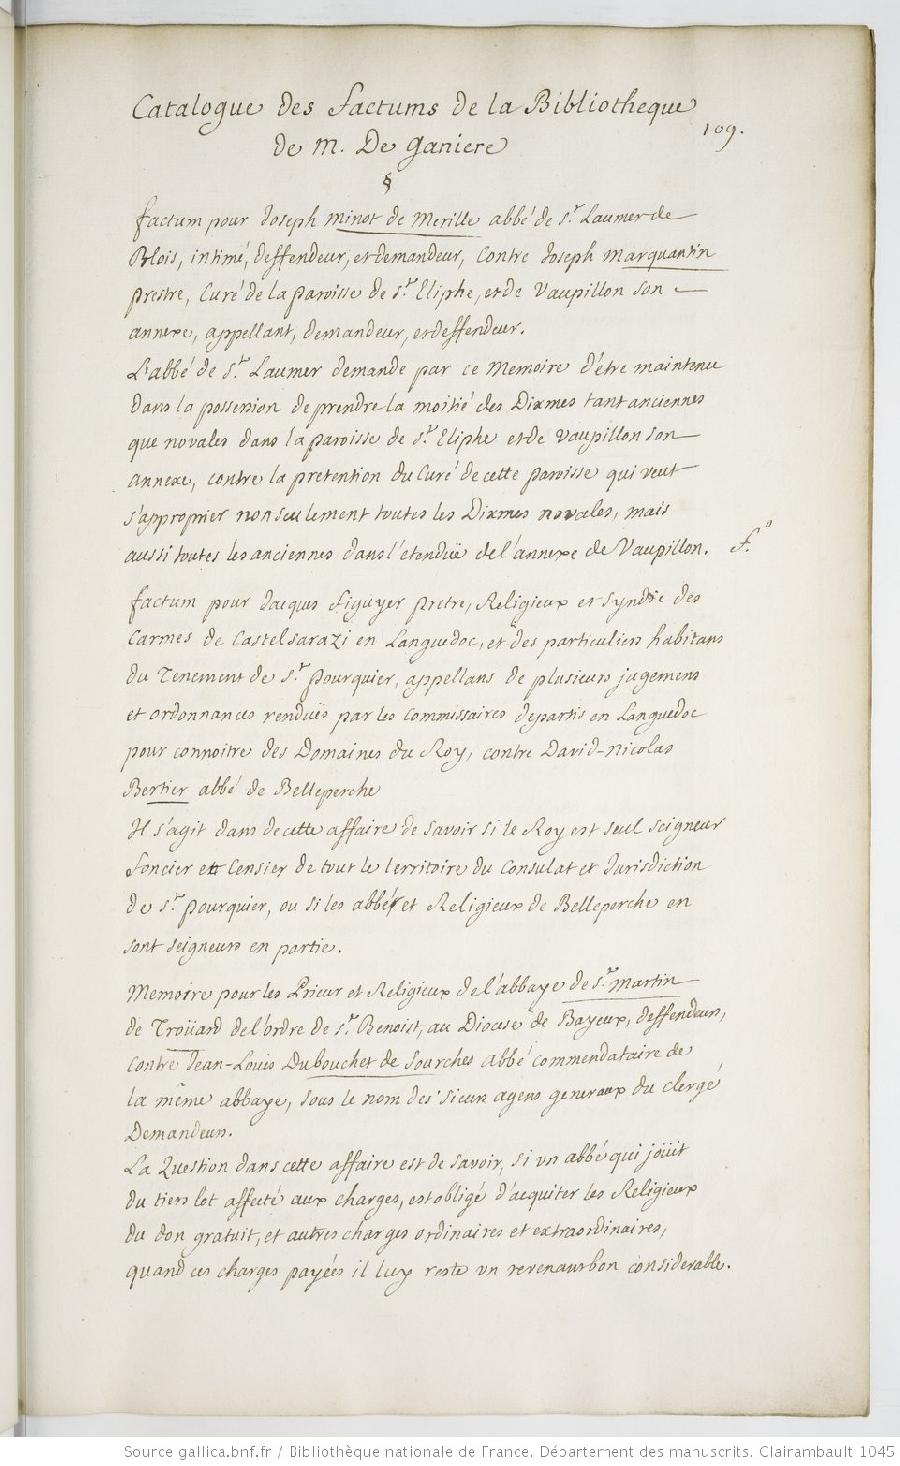 Catalogue des factums de la Bibliotheque
109.
de m. De ganiere
§
factum pour Joseph minot de Merille abbé de St. Laumer de
Blois, intimé, deffendeur, et demandeur, contre Joseph marquantin
prestre, Curé de la paroisse de St. Eliphe, et de Vaupillon son
annexe, appellant, demandeur, et deffendeur.
L'abbé de St. Laumer demande par ce Memoire d'étre maintenu
dans la possession de prendre la moitié des Dixmes tant anciennes
que novales dans la paroisse de St. Eliphe et de Vaupillon son
annexe, contre la pretention du Curé de cette paroisse qui veut
s'approprier non seulement toutes les Dixmes novales, mais
aussi toutes les anciennes dans l'etenduë de l'annexe de Vaupillon. fo.
factum pour Jacques figuyer pretre, Religieux et syndic des
Carmes de Castelsarazi en Languedoc, et des particuliers habitans
du Tenement de St. pourquier, appellans de plusieurs jugemens
et ordonnances renduës par les commissaires departis en Languedoc
pour connoitre des Domaines du Roy, contre David-nicolas
Bertier abbé de Belleperche
Il s'agit dans de cette affaire de savoir si le Roy est seul seigneur
foncier et Censier de tout le territoire du Consulat et Jurisdiction
de St. pourquier, ou si les abbé et Religieux de Belleperche en
sont seigneurs en partie.
Memoire pour les Prieur et Religieux de l'abbaye de St. Martin
de Troüard de l'ordre de St. Benoist, au Diocese de Bayeux, deffendeurs,
contre Jean-Louis Dubouchet de Sourches abbé commendataire de
la même abbaye, sous le nom des sieurs agens generaux du clergé
Demandeurs.
La Question dans cette affaire est de savoir, si un abbé qui joüit
du tiers lot affecté aux charges, est obligé d'acquiter les Religieux
du don gratuit, et autres charges ordinaires et extraordinaires,
quand ces charges payées il luy reste un revenu bon considerable.
Source gallica.bnf.fr / Bibliothèque nationale de France. Département des manuscrits. Clairambault 1045